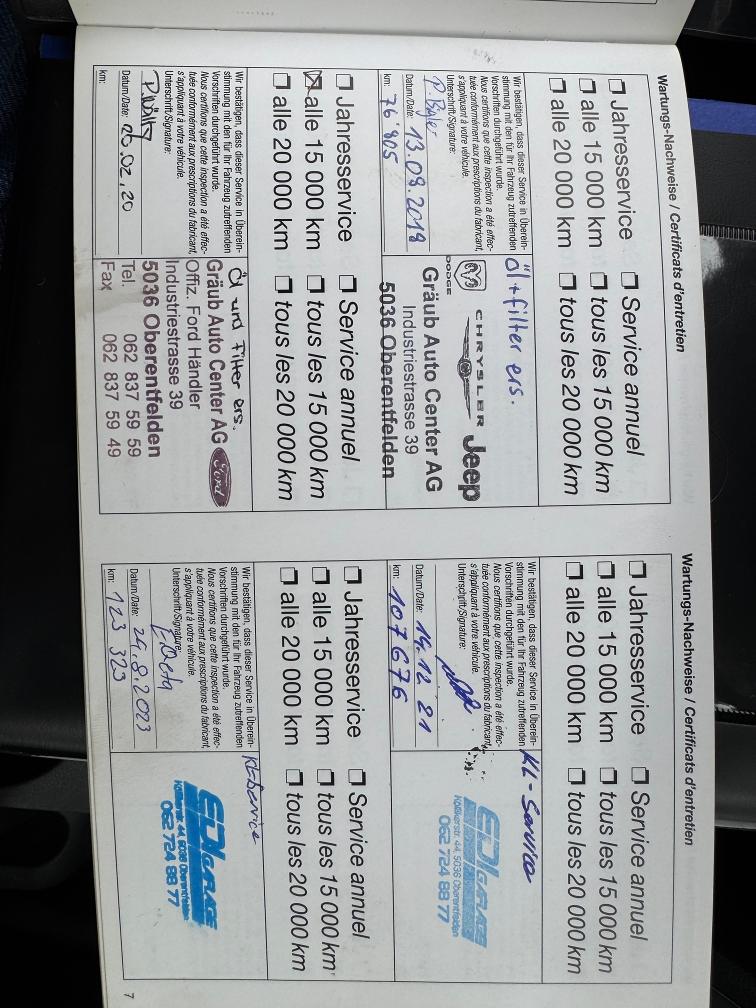 Wartungs-Nachweise / Certificats d'entretien
❒ Jahresservice ❒ Service annuel
❒ alle 15 000 km ❒ tous les 15 000 km
❒ alle 20 000 km ❒ tous les 20 000 km
Wir bestätigen, dass dieser Service in Überein-
stimmung mit den für Ihr Fahrzeug zutreffenden
Vorschriften durchgeführt wurde.
Nous certifions que cette inspection a été effec-
tuée conformément aux prescriptions du fabricant,
s'appliquant à votre véhicule.
Unterschrift/Signature:
Datum/Date: 13.09.2018
km: 76'805
Öl+filter ers.
DODGE
CHRYSLER
Jeep
Gräub Auto Center AG
Industriestrasse 39
5036 Oberentfelden
❒ Jahresservice ❒ Service annuel
☒ alle 15 000 km ❒ tous les 15 000 km
❒ alle 20 000 km ❒ tous les 20 000 km
Wir bestätigen, dass dieser Service in Überein-
stimmung mit den für Ihr Fahrzeug zutreffenden
Vorschriften durchgeführt wurde.
Nous certifions que cette inspection a été effec-
tuée conformément aux prescriptions du fabricant,
s'appliquant à votre véhicule.
Unterschrift/Signature:
Datum/Date: 25.02.20
km:
Öl und Filter ers.
Gräub Auto Center AG
Ford
Offiz. Ford Händler
Industriestrasse 39
5036 Oberentfelden
Tel. 062 837 59 59
Fax 062 837 59 49
Wartungs-Nachweise / Certificats d'entretien
❒ Jahresservice ❒ Service annuel
❒ alle 15 000 km ❒ tous les 15 000 km
❒ alle 20 000 km ❒ tous les 20 000 km
Wir bestätigen, dass dieser Service in Überein-
stimmung mit den für Ihr Fahrzeug zutreffenden
Vorschriften durchgeführt wurde.
Nous certifions que cette inspection a été effec-
tuée conformément aux prescriptions du fabricant,
s'appliquant à votre véhicule.
Unterschrift/Signature:
Datum/Date: 14.12 21
km: 107676
KL-Service
EDI GARAGE
Kölikerstr. 44, 5036 Oberentfelden
062 724 88 77
❒ Jahresservice ❒ Service annuel
❒ alle 15 000 km ❒ tous les 15 000 km
❒ alle 20 000 km ❒ tous les 20 000 km
Wir bestätigen, dass dieser Service in Überein-
stimmung mit den für Ihr Fahrzeug zutreffenden
Vorschriften durchgeführt wurde.
Nous certifions que cette inspection a été effec-
tuée conformément aux prescriptions du fabricant,
s'appliquant à votre véhicule.
Unterschrift/Signature:
Datum/Date: 29.8.2023
km: 123 323
EDI GARAGE
Kölikerstr. 44, 5036 Oberentfelden
062 724 88 77
7